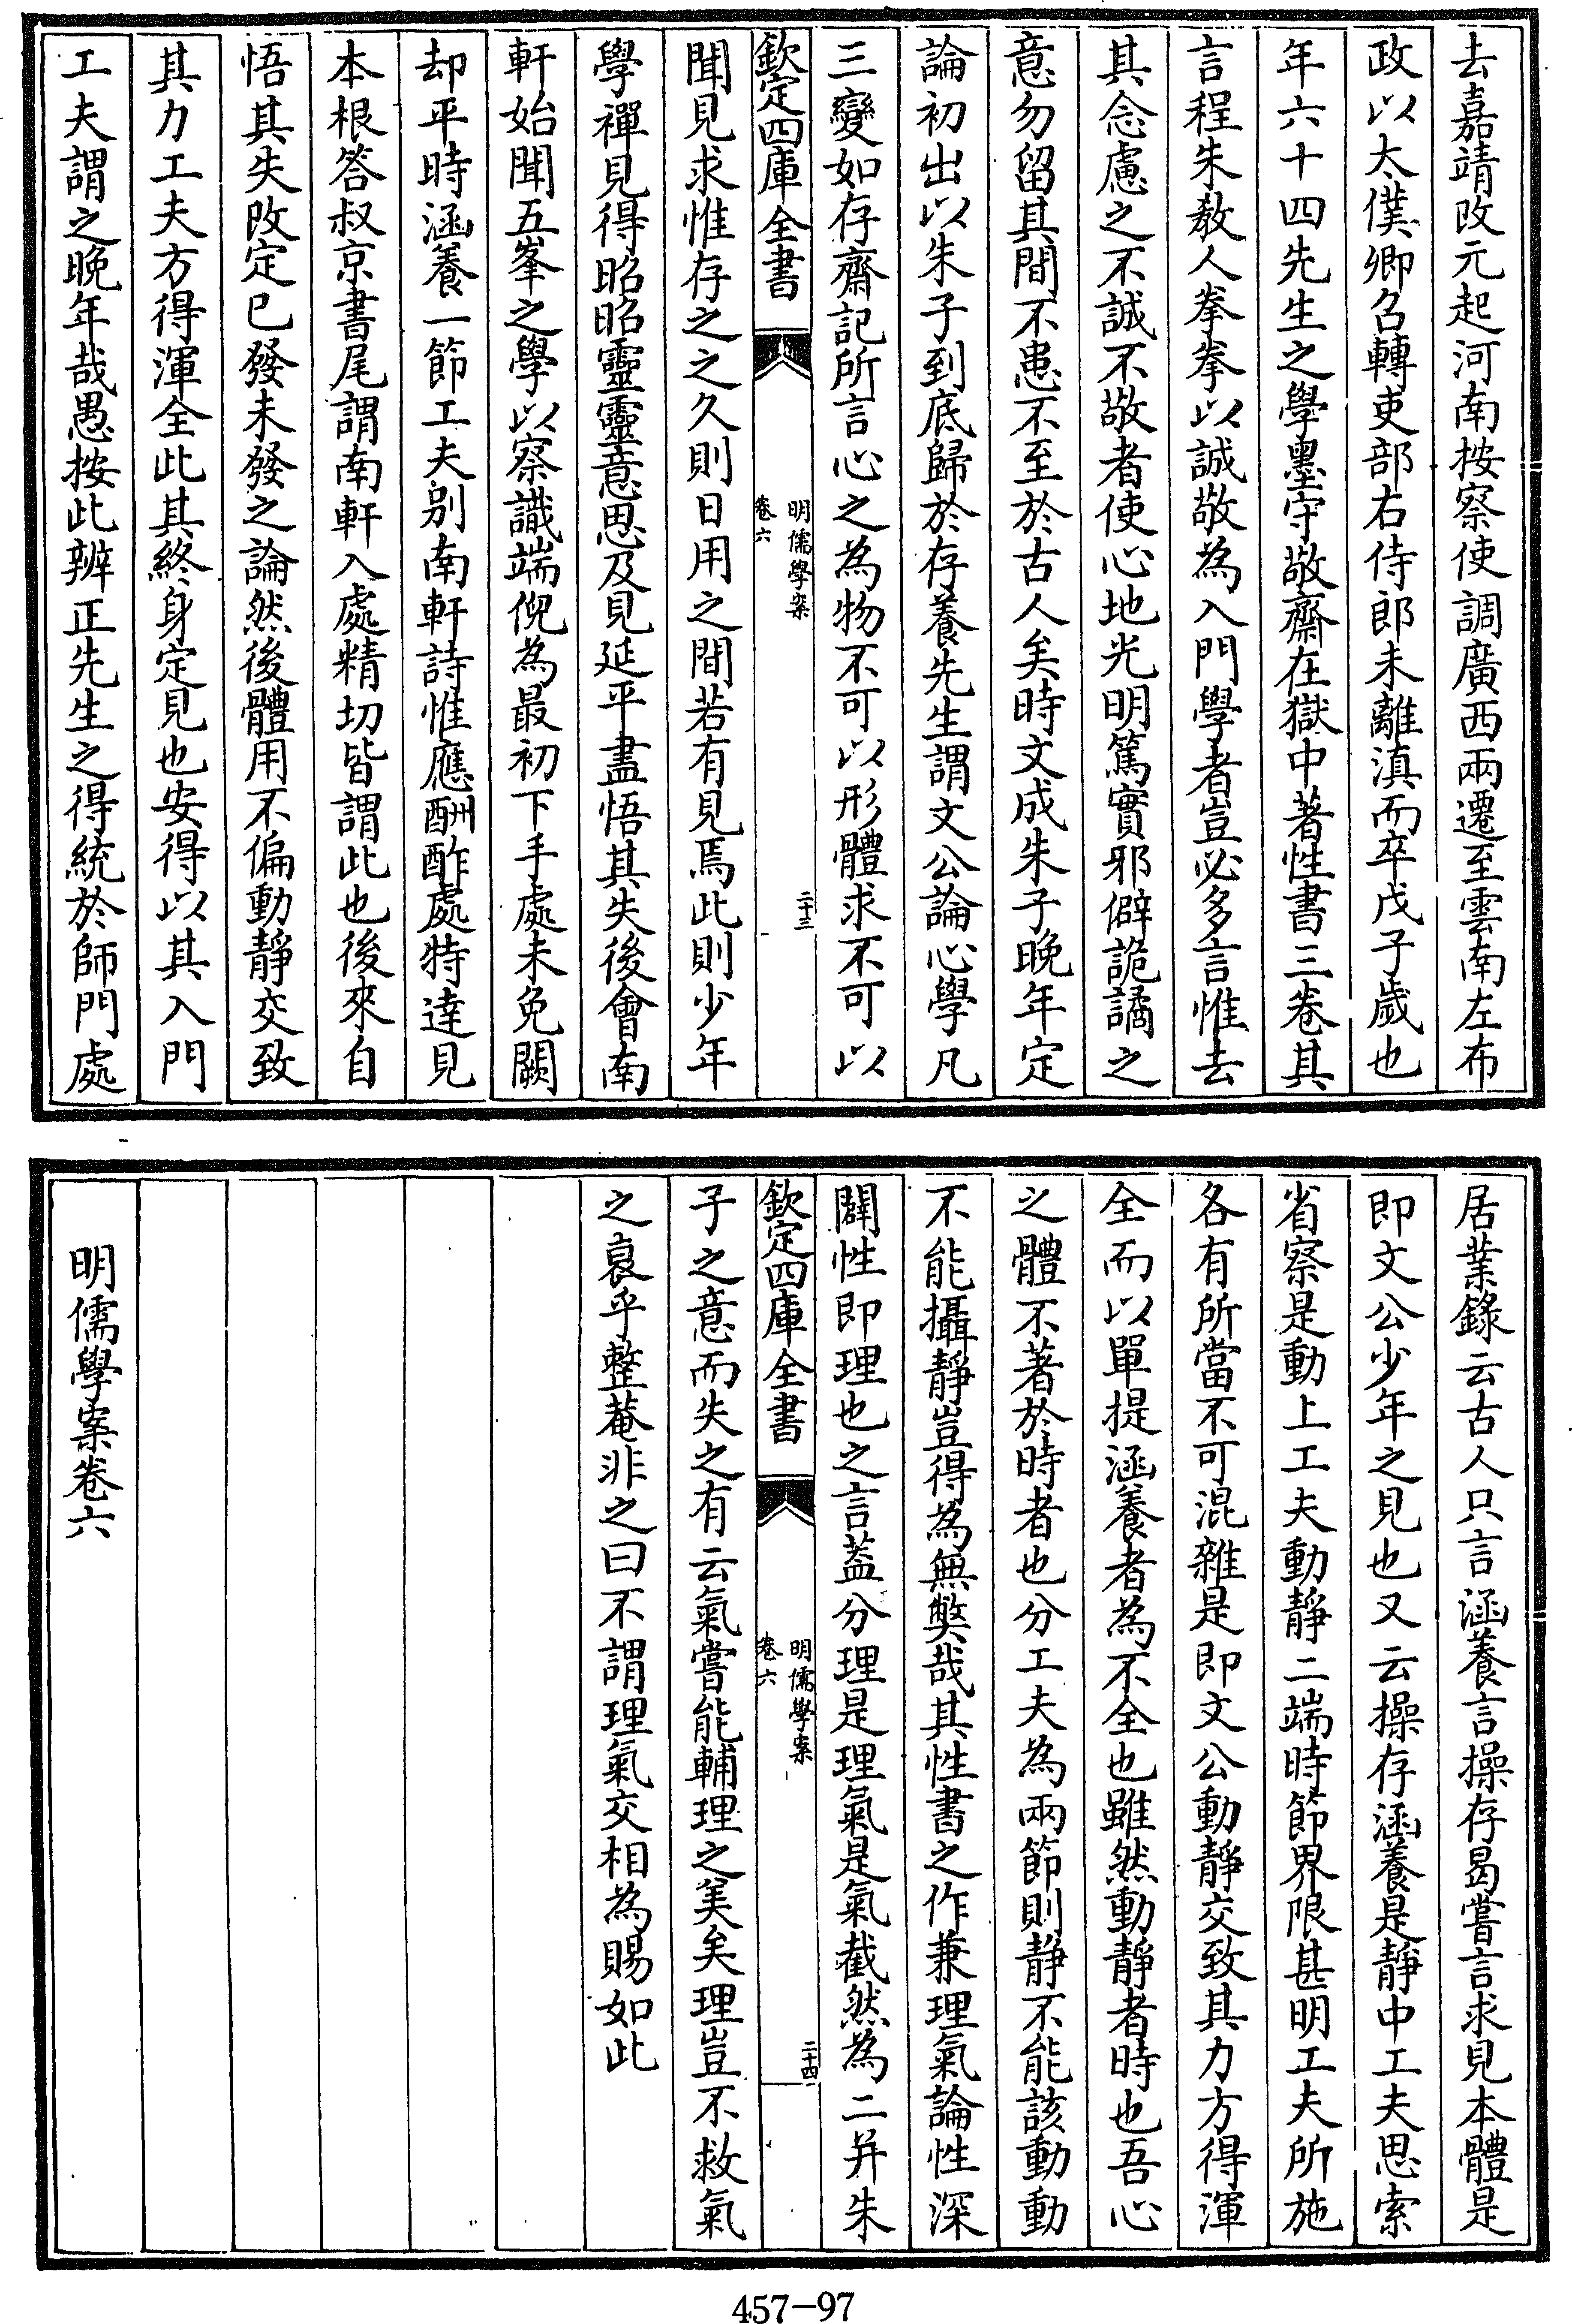 去嘉靖改元起河南按察使調廣西兩遷至雲南左布
政以太僕卿召轉吏部右侍郎未離滇而卒戊子歲也
年六十四先生之學墨守敬齋在獄中著性書三卷其
言程朱教人拳拳以誠敬為入門學者豈必多言惟去
其念慮之不誠不敬者使心地光明篤實邪僻詭譎之
意勿留其間不患不至於古人矣時文成朱子晚年定
論初出以朱子到底歸於存養先生謂文公論心學凡
三變如存齋記所言心之為物不可以形體求不可以
欽定四庫全書
明儒學案
卷六
二十三
聞見求惟存之之久則日用之間若有見焉此則少年
學禪見得昭昭靈靈意思及見延平盡悟其失後會南
軒始聞五峯之學以察識端倪為最初下手處未免闕
却平時涵養一節工夫別南軒詩惟應酬酢處特達見
本根答叔京書尾謂南軒入處精切皆謂此也後來自
悟其失改定已發未發之論然後體用不偏動靜交致
其力工夫方得渾全此其終身定見也安得以其入門
工夫謂之晚年哉愚按此辨正先生之得統於師門處
居業錄云古人只言涵養言操存曷嘗言求見本體是
即文公少年之見也又云操存涵養是靜中工夫思索
省察是動上工夫動靜二端時節界限甚明工夫所施
各有所當不可混雜是即文公動靜交致其力方得渾
全而以單提涵養者為不全也雖然動靜者時也吾心
之體不著於時者也分工夫為兩節則靜不能該動動
不能攝靜豈得為無獘哉其性書之作兼理氣論性深
闢性即理也之言葢分理是理氣是氣截然為二并朱
欽定四庫全書
明儒學案
卷六
二十四
子之意而失之有云氣嘗能輔理之美矣理豈不救氣
之衰乎整菴非之曰不謂理氣交相為賜如此
明儒學案卷六
457-97